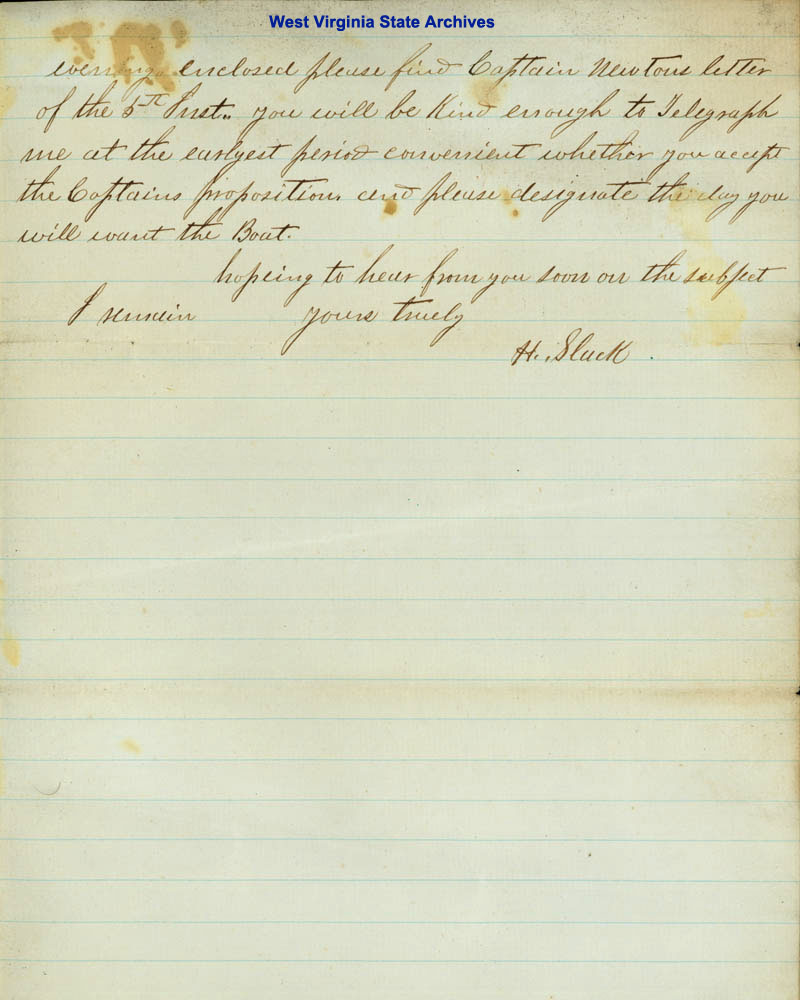 West Virginia State Archives
evening. enclosed please find Captain Newtons letter
of the 5th Inst.. you will be Kind enough to Telegraph
me at the earlyest period convenient whether you accept
the Captains proposition. and please designate the day you
will want the Boat.
hopeing to hear from you soon on the subject
I remain yours truely
H. Slack.